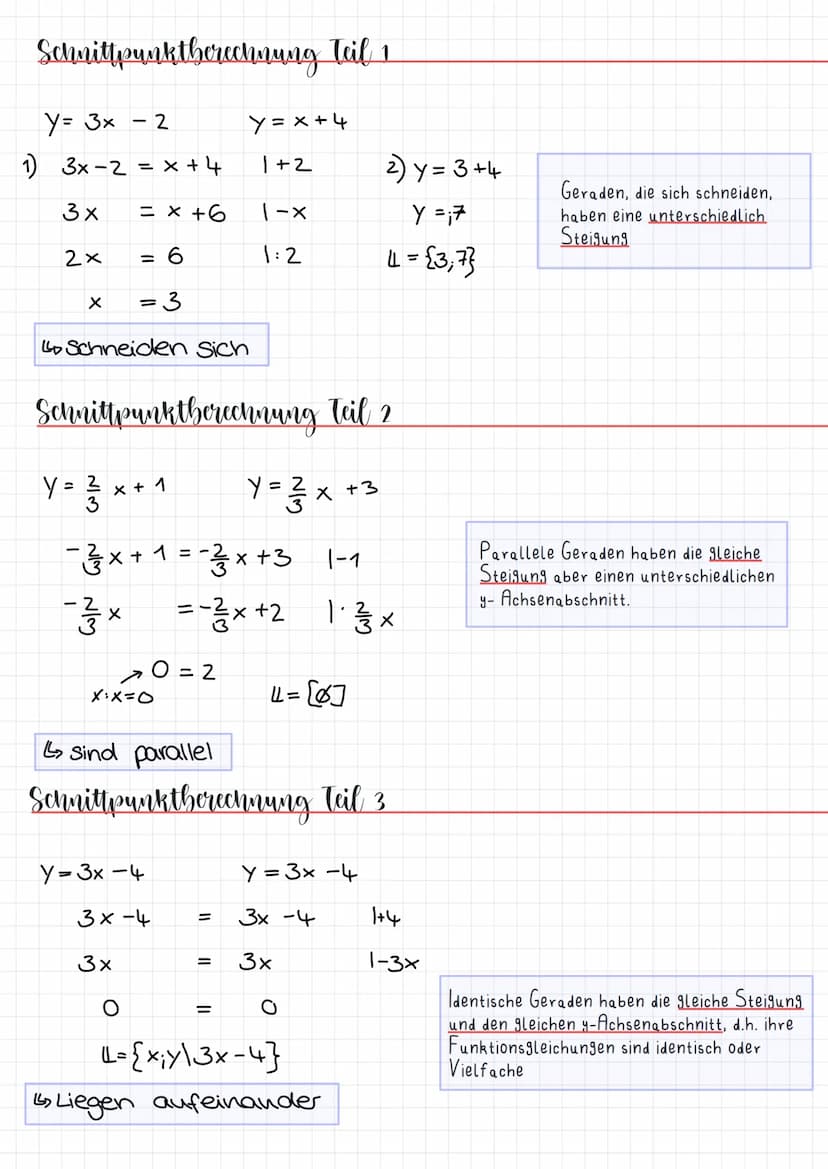 Schnittpunktberechnung Teil 1
y = 3x - 2    y = x + 4
1) 3x - 2 = x + 4  | + 2    2) y = 3 + 4
3x = x + 6  | - x    y = ; 7
2x = 6  | : 2    𝕃 = {3; 7}
x = 3
Geraden, die sich schneiden,
haben eine unterschiedlich
Steigung
↳ Schneiden sich
Schnittpunktberechnung Teil 2
y = 2/3 x + 1    y = 2/3 x + 3
-2/3 x + 1 = -2/3 x + 3  | - 1
-2/3 x = -2/3 x + 2  | · 2/3 x
↗ 0 = 2
x:x=0    𝕃 = [Ø]
Parallele Geraden haben die gleiche
Steigung aber einen unterschiedlichen
y- Achsenabschnitt.
↳ sind parallel
Schnittpunktberechnung Teil 3
y = 3x - 4    y = 3x - 4
3x - 4 = 3x - 4  | + 4
3x = 3x  | - 3x
0 = 0
𝕃 = {x;y\3x - 4}
Identische Geraden haben die gleiche Steigung
und den gleichen y-Achsenabschnitt, d.h. ihre
Funktionsgleichungen sind identisch oder
Vielfache
↳ Liegen aufeinander